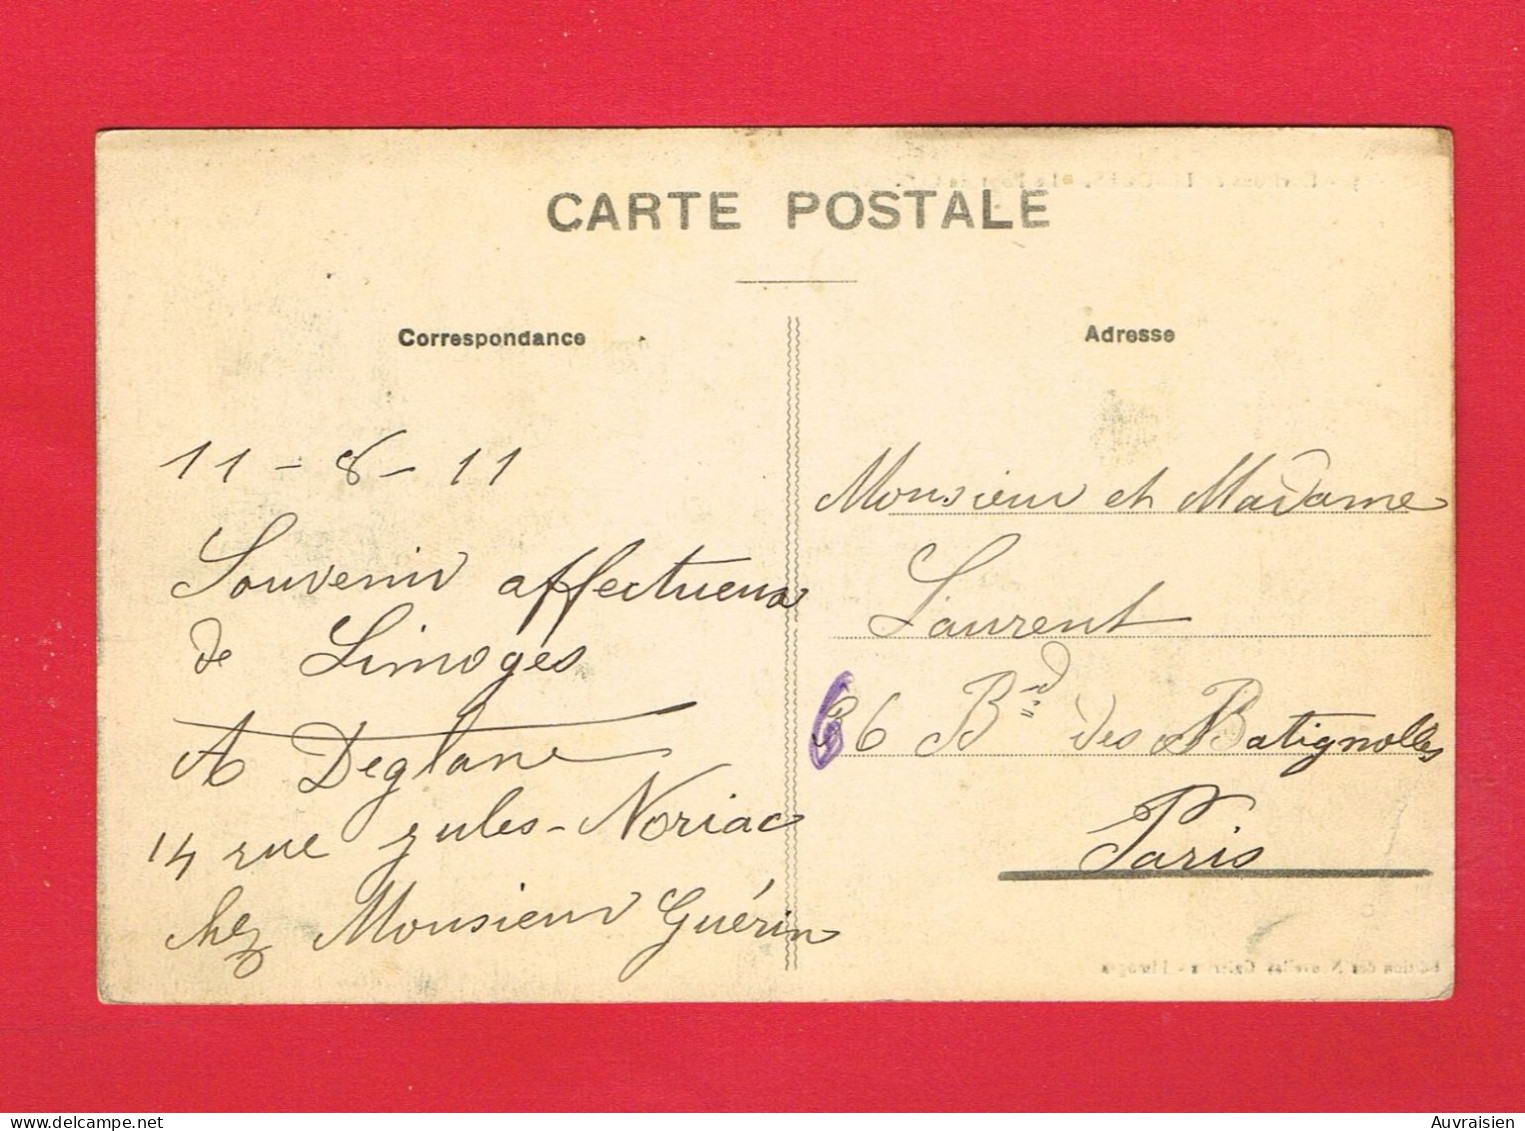 CARTE POSTALE
Correspondance
11 - 8 - 11
Souvenir affectueux
de Limoges
A Deglane
14 rue Jules-Noriac
chez Monsieur Guérin
Adresse
Monsieur et Madame
Laurent
36 Bd des Batignolles
Paris
Edition des Nouvelles Galeries - Limoges
Auvraisien